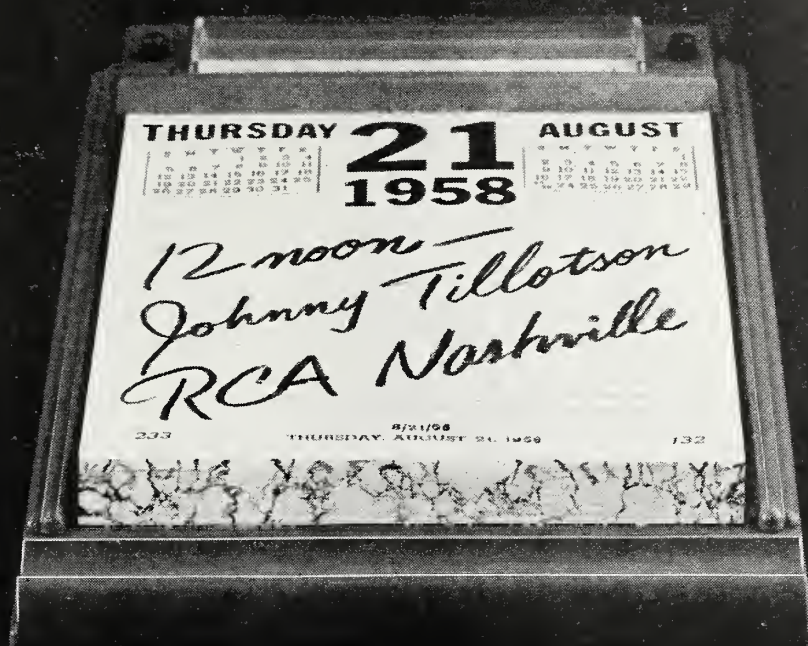 THURSDAY 21 AUGUST
1958
12 noon —
Johnny Tillotson
RCA Nashville
8/21/58
233 THURSDAY, AUGUST 21, 1958 132